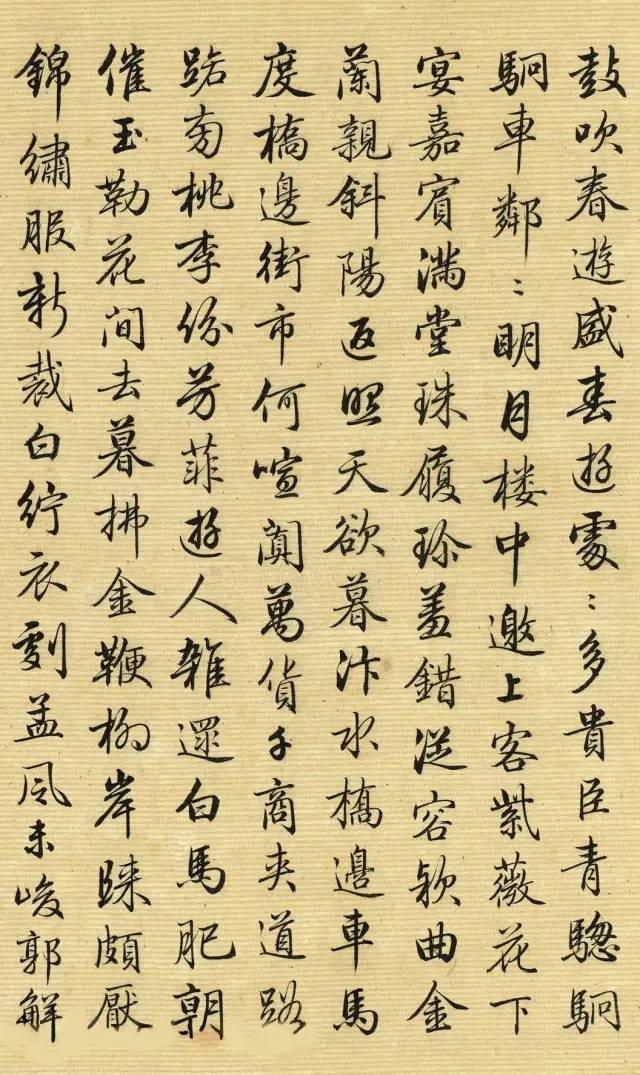 鼓吹春遊盛春遊處々多貴臣青驄駉
駉車鄰々明月楼中邀上客紫薇花下
宴嘉賓滿堂珠履珍羞錯從容欵曲金
蘭親斜陽返照天欲暮汴水橋邊車馬
度橋邊街市何喧闐萬貨千商夾道路
路旁桃李份芳菲遊人雜遝白馬肥朝
催玉勒花间去暮拂金鞭柳岸歸頗厭
錦繡服新裁白紵衣劇孟風未峻郭解